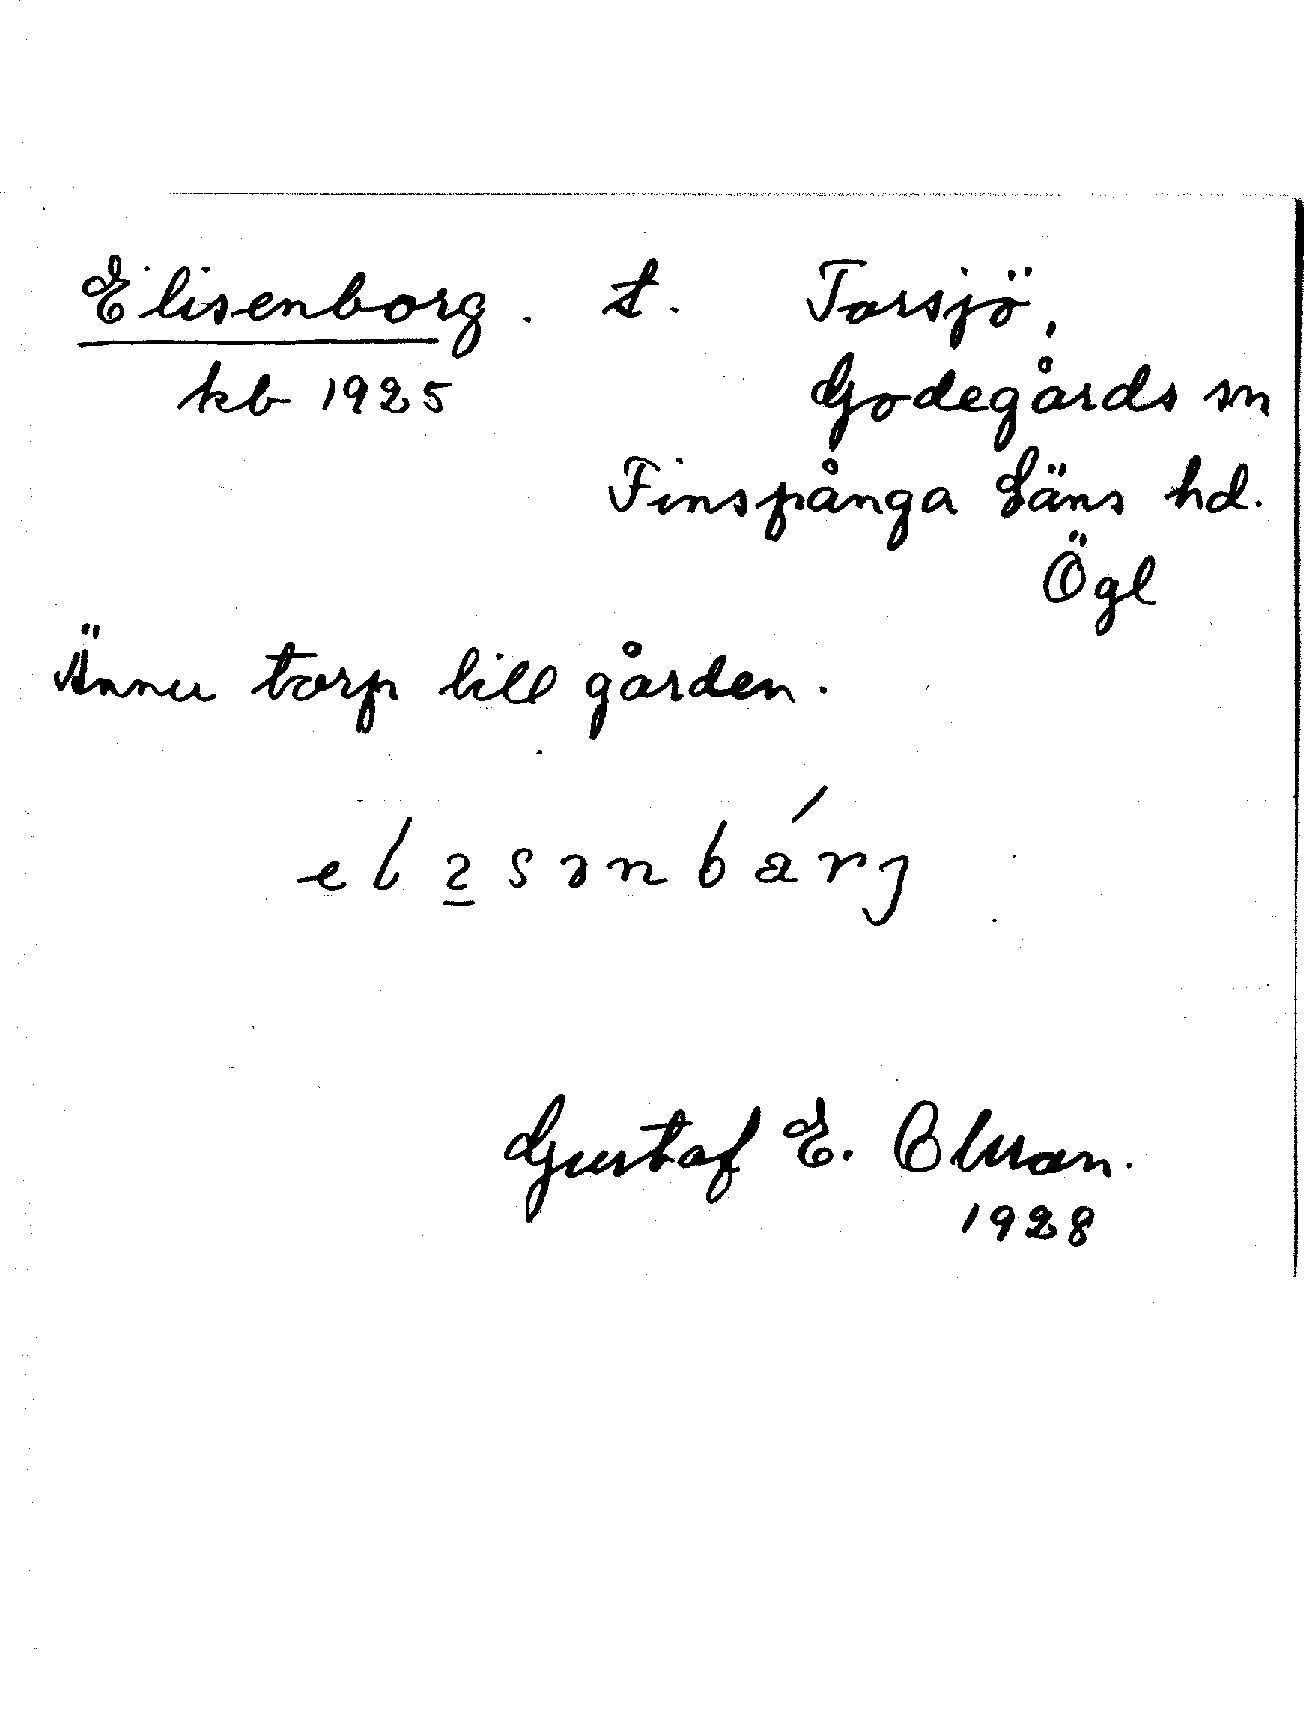 Elisenborg. t. Torsjö,
kb 1925 Godegårds sn
Finspånga Läns hd.
Ögl
Ännu torp till gården.
Gustaf E. Olsson.
1928